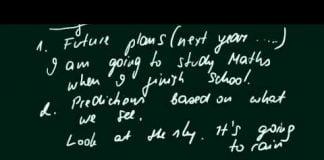 1. Future plans (next year .....)
I am going to study Maths
when I finish school.
2. Predictions based on what
we see.
Look at the sky. It's going
to rain